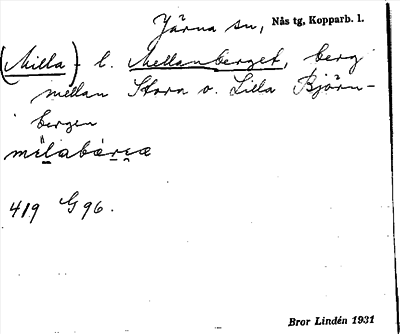 Järna sn, Nås tg, Kopparb. l.
(Milla) - l. Mellanberget, berg
mellan Stora o. Lilla Björn-
bergen
419 G96.
Bror Lindén 1931